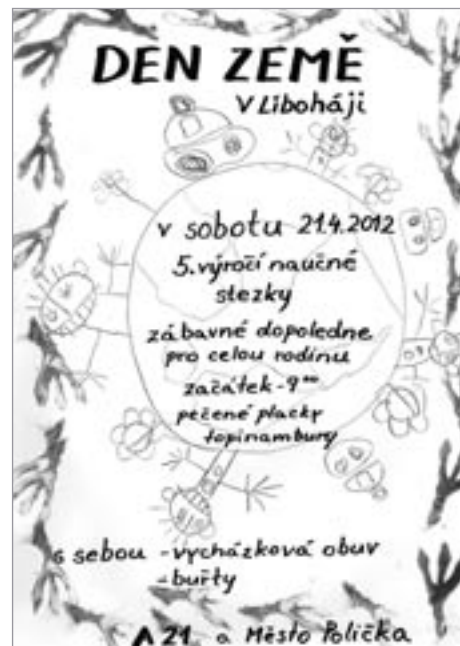 DEN ZEMĚ
V Liboháji
v sobotu 21.4.2012
5. výročí naučné
stezky
zábavné dopoledne
pro celou rodinu
začátek - 9⁰⁰
pečené placky
topinambury
s sebou - vycházková obuv
- buřty
A 21 a Město Polička